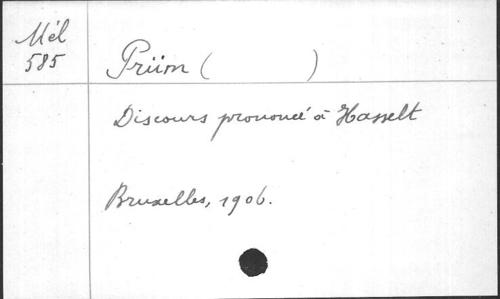 Mél
585
Prüm ( )
Discours prononcé à Hasselt
Bruxelles, 1906.